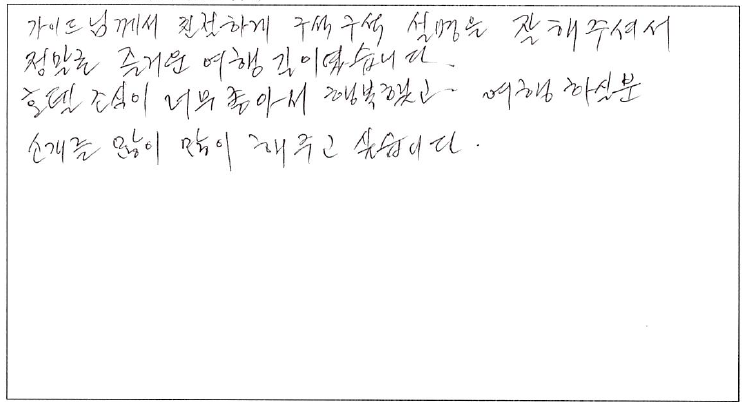 가이드님께서 친절하게 구석구석 설명을 잘해주셔서
정말로 즐거운 여행길이였습니다.
호텔 조식이 너무 좋아서 행복했고. 여행 하실분
소개를 많이 많이 해주고 싶습니다.